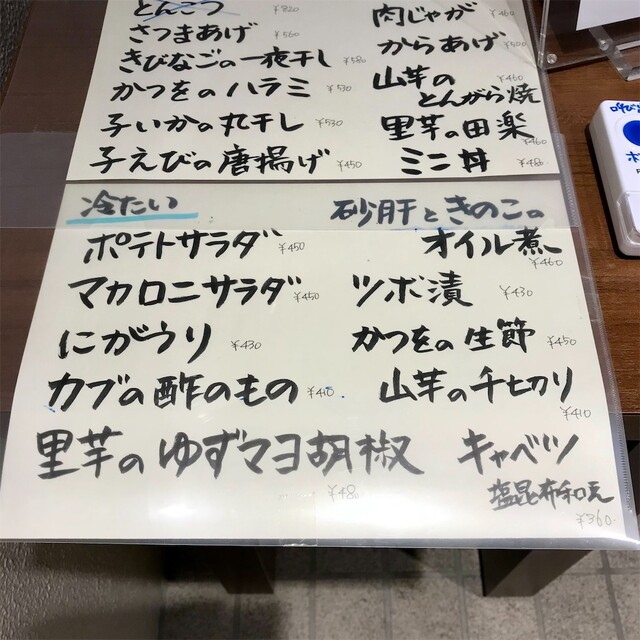 とんこつ ¥820
さつまあげ ¥560
きびなごの一夜干し ¥580
かつをのハラミ ¥530
子いかの丸干し ¥530
子えびの唐揚げ ¥450
肉じゃが ¥460
からあげ ¥500
山芋の
とんがら焼
¥460
里芋の田楽
¥460
ミニ丼 ¥480
冷たい
ポテトサラダ ¥450
マカロニサラダ ¥450
にがうり ¥430
カブの酢のもの ¥410
里芋のゆずマヨ胡椒
¥480
砂肝ときのこの
オイル煮
¥460
ツボ漬 ¥430
かつをの生節 ¥450
山芋の千切り
¥410
キャベツ
塩昆布和え
¥360